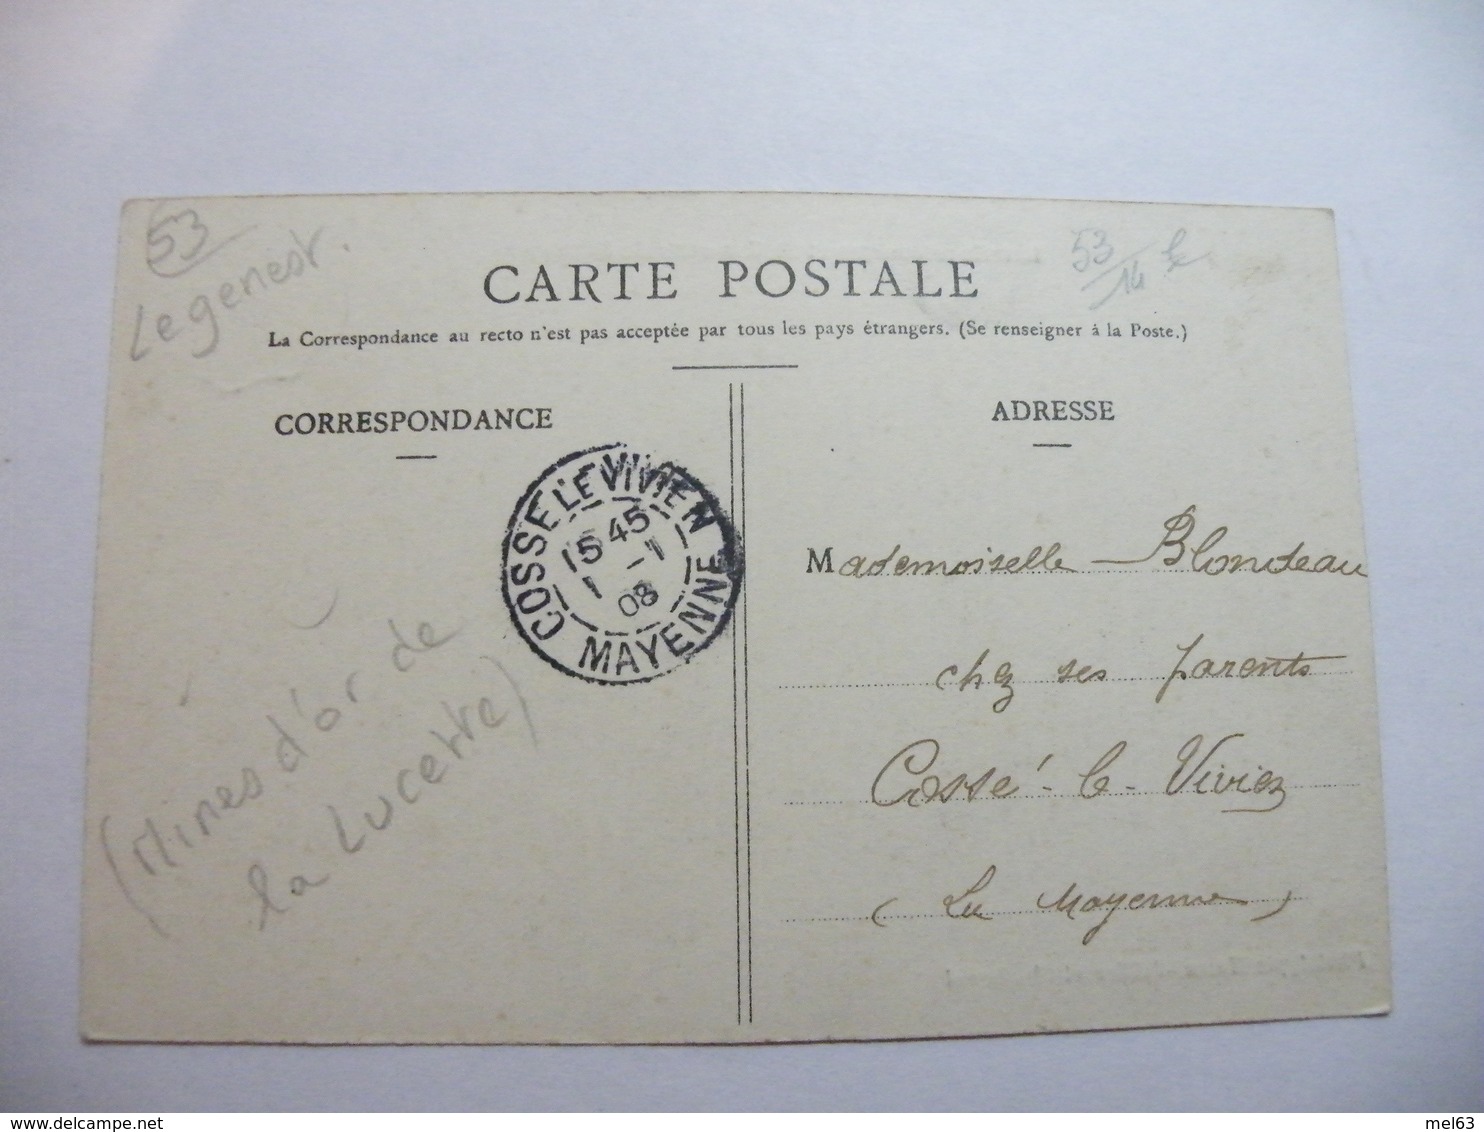 53
Legenest.
53/14
CARTE POSTALE
La Correspondance au recto n'est pas acceptée par tous les pays étrangers. (Se renseigner à la Poste.)
CORRESPONDANCE
ADRESSE
COSSE LE VIVIEN
15 45
1 - 1
08
MAYENNE
Mademoiselle Blondeau
chez ses parents
Cossé-le-Vivien
(La Mayenne)
(Mines d'or de
la Lucette)
delcampe.net
mel63